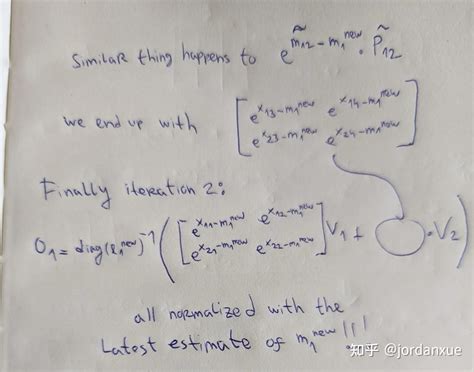 Similar thing happens to e^{m̃₁₂ - m₁^{new}} · P̃₁₂
we end up with [e^{x₁₃ - m₁^{new}} e^{x₁₄ - m₁^{new}}
e^{x₂₃ - m₁^{new}} e^{x₂₄ - m₁^{new}}]
Finally iteration 2:
O₁ = diag(l₁^{new})⁻¹ ([e^{x₁₁ - m₁^{new}} e^{x₁₂ - m₁^{new}}
e^{x₂₁ - m₁^{new}} e^{x₂₂ - m₁^{new}}] V₁ + ◯ · V₂)
all normalized with the
Latest estimate of m₁^{new}!!!
知乎 @jordanxue